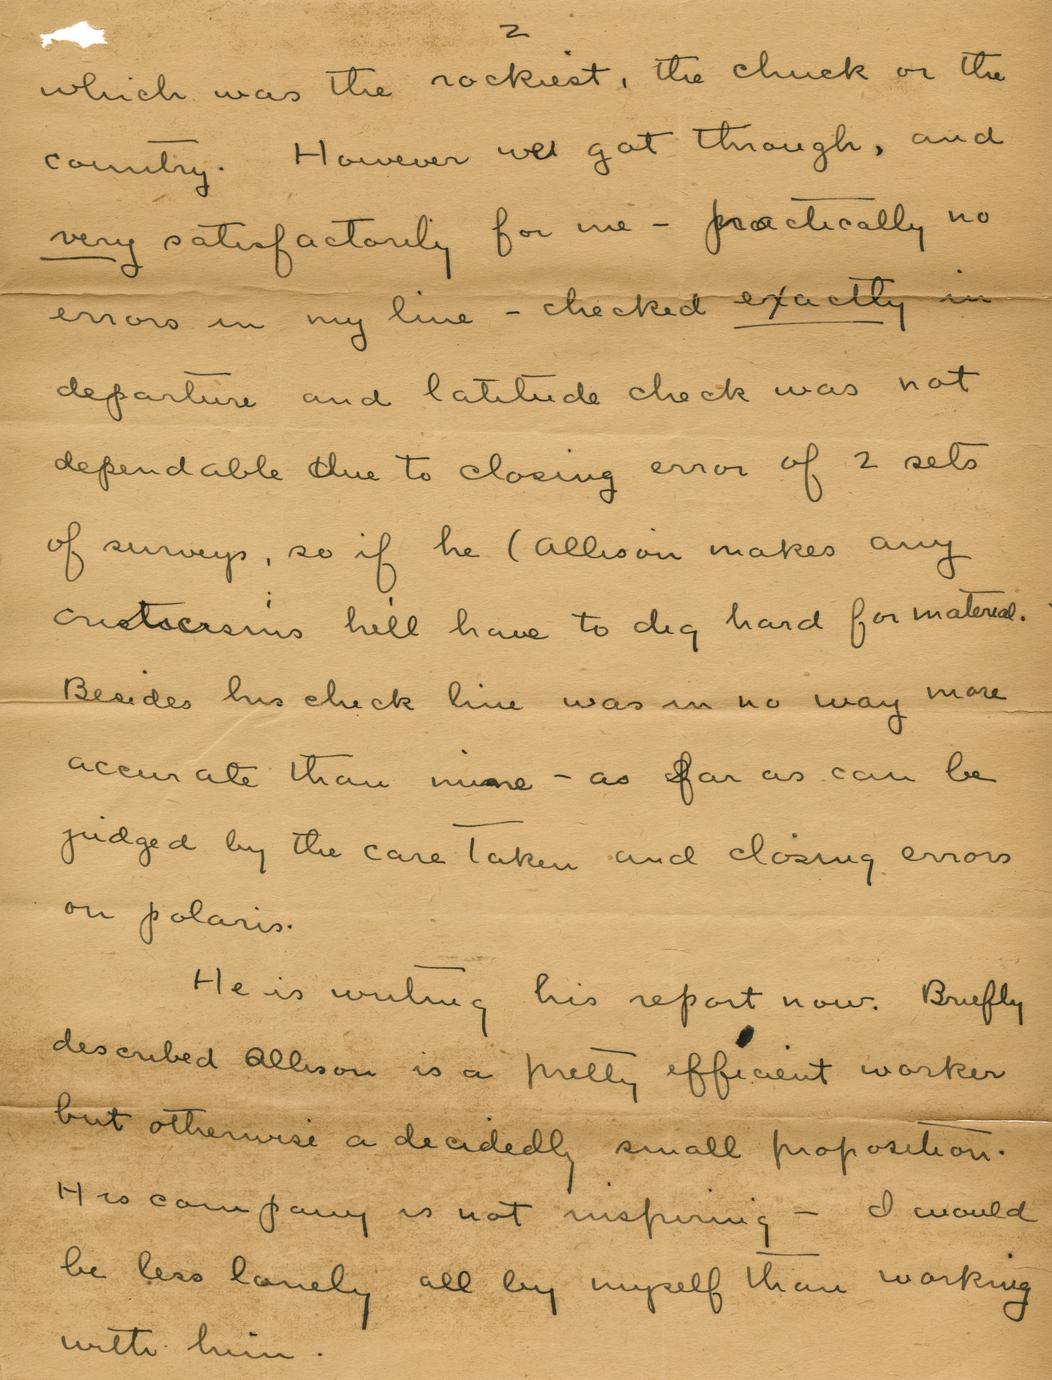 2
which was the rockiest, the chuck or the
country. However we got through, and
very satisfactorily for me - practically no
errors in my line - checked exactly in
departure and latitude check was not
dependable due to closing error of 2 sets
of surveys, so if he (Allison makes any
he'll have to dig hard for material.
Besides his check line was in no way more
accurate than mine - as far as can be
judged by the care taken and closing errors
on polaris.
He is writing his report now. Briefly
described Allison is a pretty efficient worker
but otherwise a decidedly small proposition.
His company is not inspiring - I would
be less lonely all by myself than working
with him.